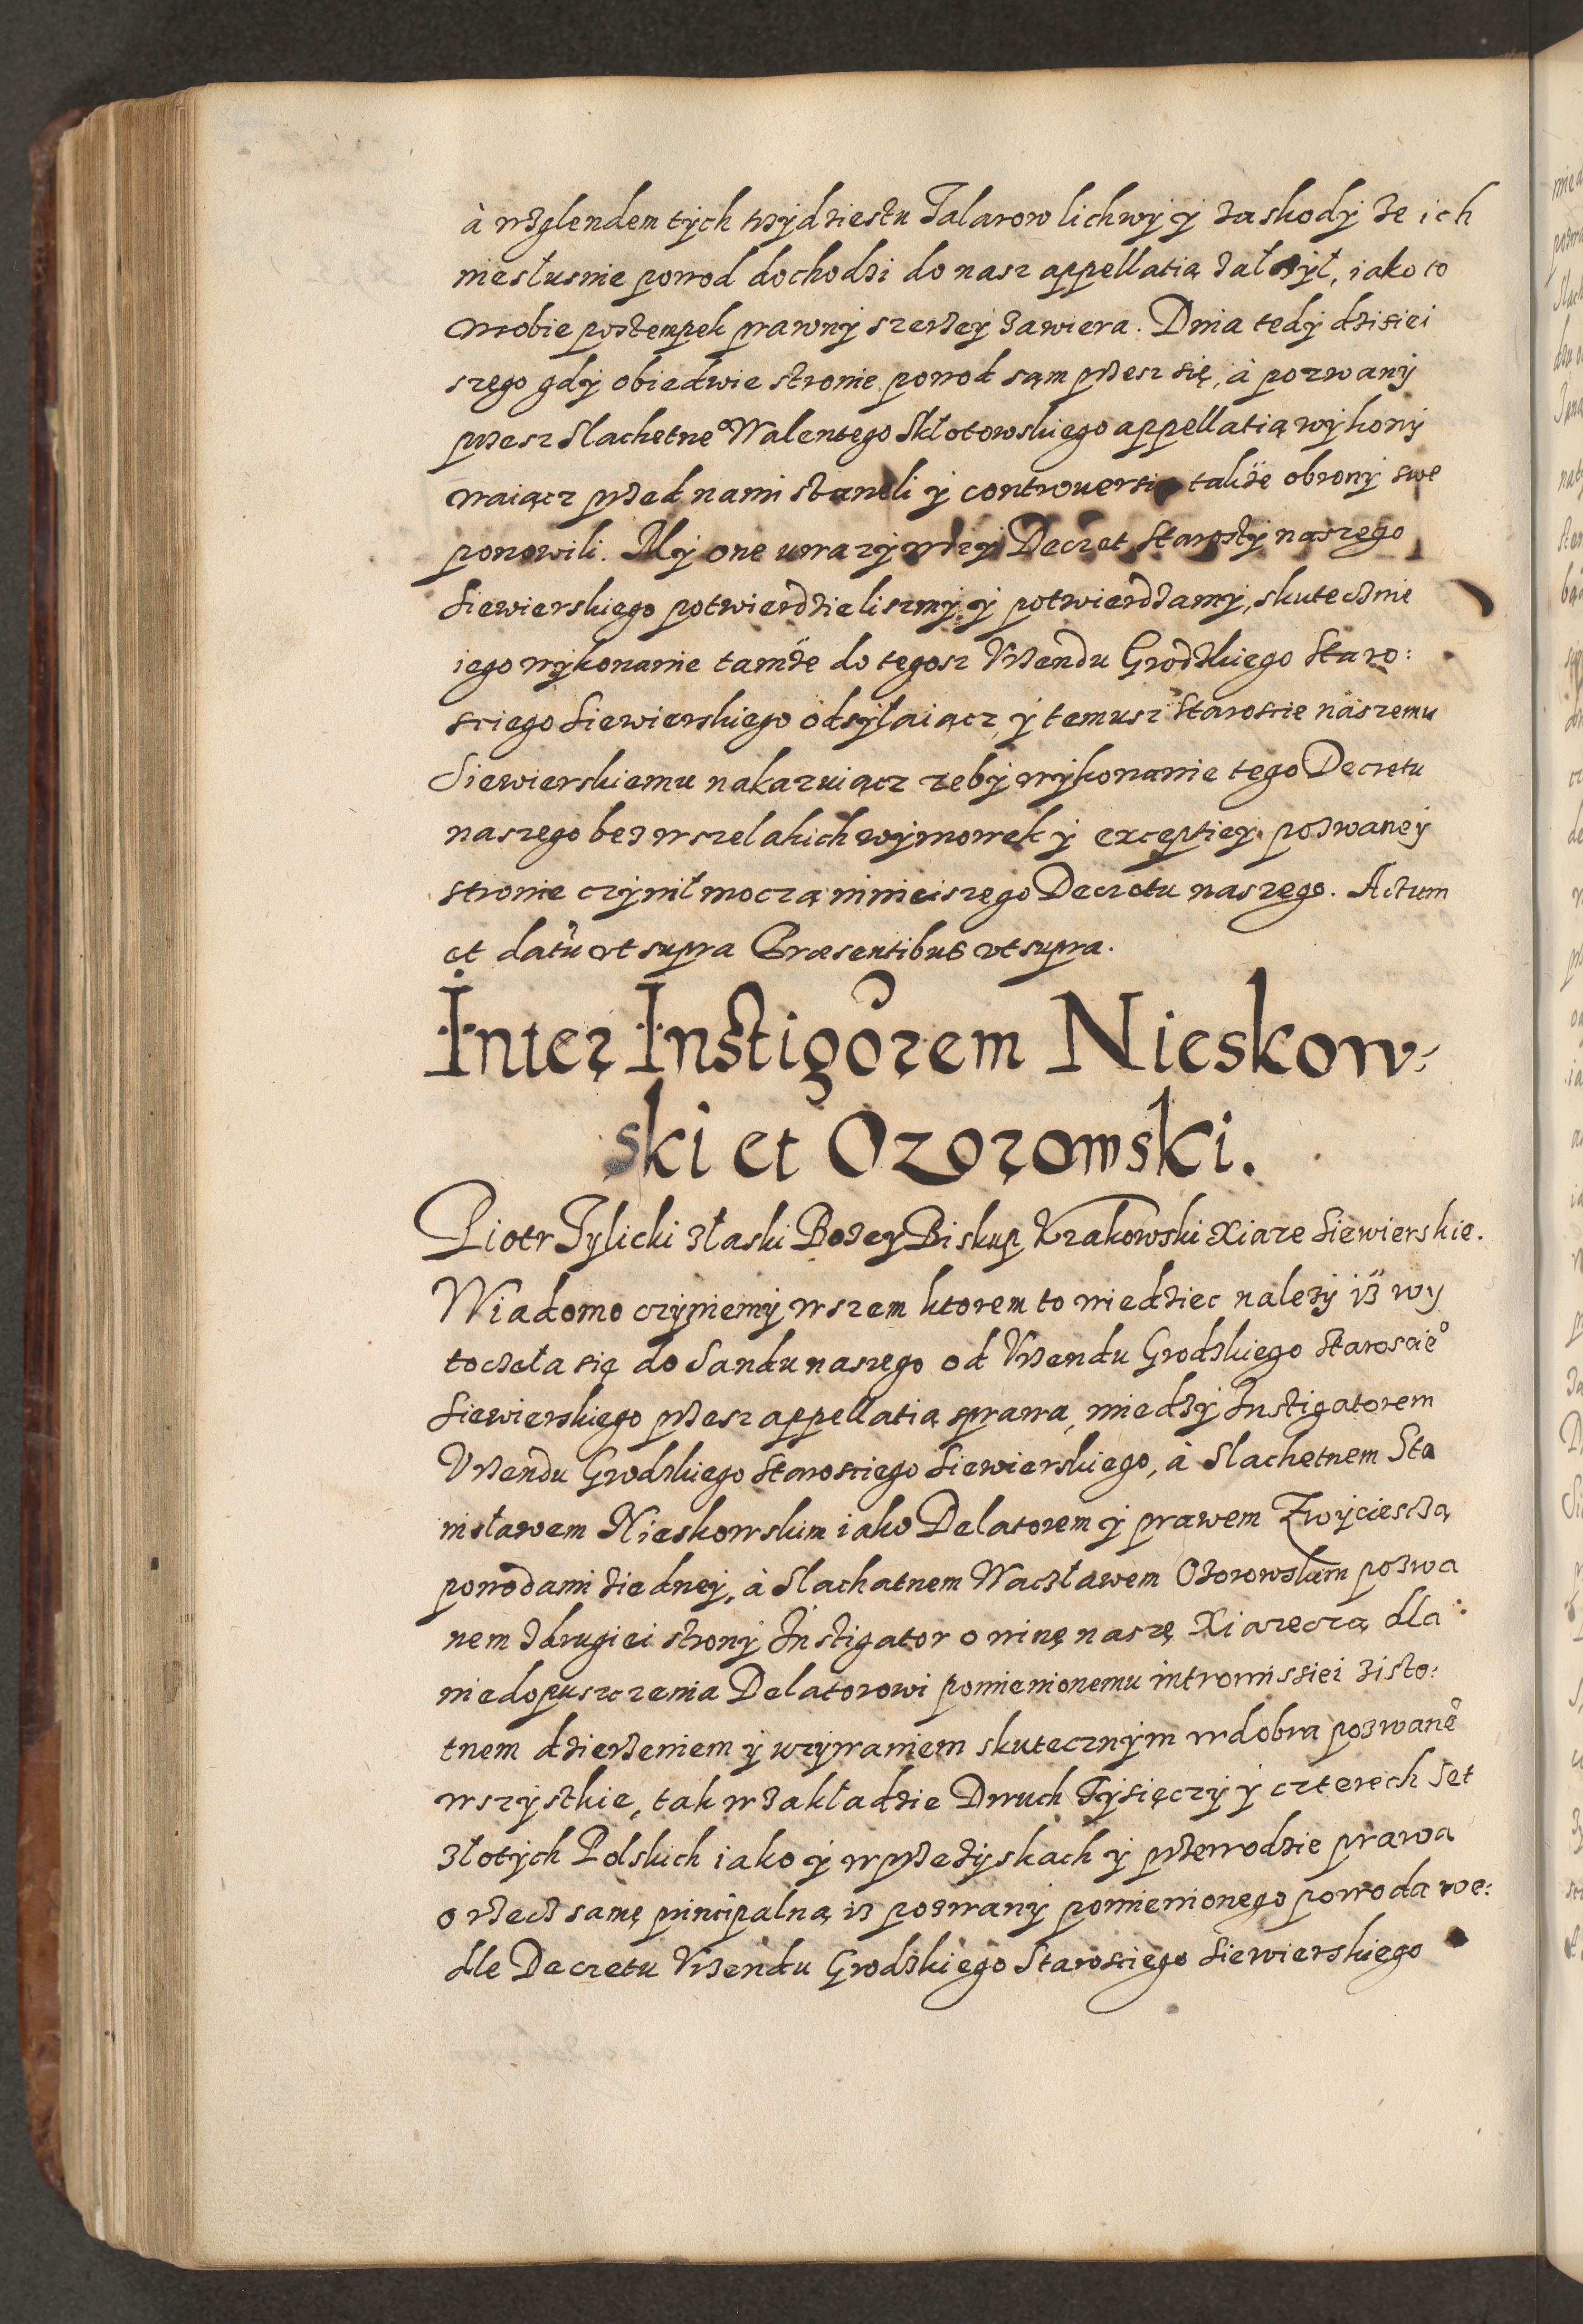 à wzglendem tych trzydziestu Talarow lichwy y zaskody ze ich
niesłusnie powod dochodzi do nasz appellatią załozył, iako to
w sobie postempek prawny szerzey zawiera. Dnia tedy dzisiei
szego gdy obiedwie stronie powod sąm przesz się, à pozwany
przesz Slachetne° Walentego Skłotowskiego appellatią wykony
waiącz przed nami stanęli y controuersie także obrony swe
ponowili. My one uwazywszy Decret Starosty naszego
Siewierskiego potwierdzieliszmy y potwierdzamy, skutecznie
iego wykonanie tamże do tegosz Vrzendu Grodzkiego Staro:
sciego Siewierskiego odsyłaiącz, y temusz Staroscie naszemu
Siewierskiemu nakazuiącz zeby wykonanie tego Decretu
naszego bez wszelakich wymowek y exceptiey pozwaney
stronie czynił moczą ninieiszego Decretu naszego. Actum
et datū vt supra Præsentibus vt supra.
Inter Instigōrem Nieskow:
ski et Ozorowski.
Piotr Tylicki złaski Bozey Biskup Krakowski Xiaze Siewierskie.
Wiadomo czyniemy wszem ktorem to wiedziec nalezy iż wy
toczeła się do Sandu naszego od Vrzendu Grodzkiego Staroscie°
Siewierskiego przesz appellatią sprawa, miedzy Instigatorem
Vrzendu Grodzkiego Starosciego Siewierskiego, à Slachetnem Sta
nisławem Nieskowskim iako Delatorem y prawem Zwyciesczą
powodami ziedney, à Slachatnem Waczławem Ozorowskim pozwa
nem zdrugiei strony Instigator o winę naszę Xiazeczą dla
niedopuszczenia Delatorowi pomienionemu intromissiei zisto:
tnem dzierzeniem y uzywaniem skutecznym w dobra pozwane°
wszystkie, tak w zakładzie Dwuch Tysięczy y czterech set
złotych Polskich iako y w przezyskach y przewodzie prawa
o rzecz samę principalną iz pozwany pomienionego powoda we:
dle Decretu Vrzendu Grodzkiego Starosciego Siewierskiego